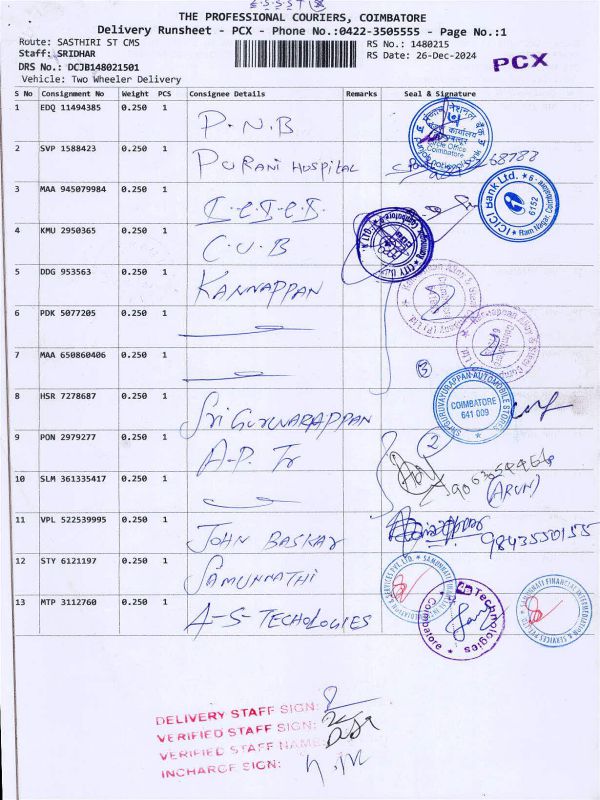 THE PROFESSIONAL COURIERS, COIMBATORE
Delivery Runsheet - PCX - Phone No.:0422-3505555 - Page No.:1
Route: SASTHIRI ST CMS
RS No.: 1480215
Staff: SRIDHAR
RS Date: 26-Dec-2024
PCX
DRS No.: DCJB148021501
Vehicle: Two Wheeler Delivery
S No Consignment No Weight PCS Consignee Details Remarks Seal & Signature
1 EDQ 11494385 0.250 1 P.N.B
2 SVP 1588423 0.250 1 PURANI HOSPITAL
3 MAA 945079984 0.250 1
ICICI Bank Ltd. 6152 Ram Nagar, Coimbatore - 9
4 KMU 2950365 0.250 1 C.U.B
5 DDG 953563 0.250 1 KANNAPPAN
6 PDK 5077205 0.250 1
7 MAA 650860406 0.250 1
3
8 HSR 7278687 0.250 1 SRI GURUVARAPPAN
SRI GURUVAYURAPPAN AUTOMOBILE STORES COIMBATORE 641 009
9 PON 2979277 0.250 1 A-P. Tr
2
10 SLM 361335417 0.250 1
(ARUN)
11 VPL 522539995 0.250 1 JOHN BASKAR
9843550155
12 STY 6121197 0.250 1 SAMUNNATHI
13 MTP 3112760 0.250 1 A-S- TECHOLOGIES
Technologies Coimbatore
SAMUNNATI FINANCIAL INTERMEDIATION & SERVICES PVT. LTD.
DELIVERY STAFF SIGN:
VERIFIED STAFF SIGN:
VERIFIED STAFF NAME:
INCHARGE SIGN: